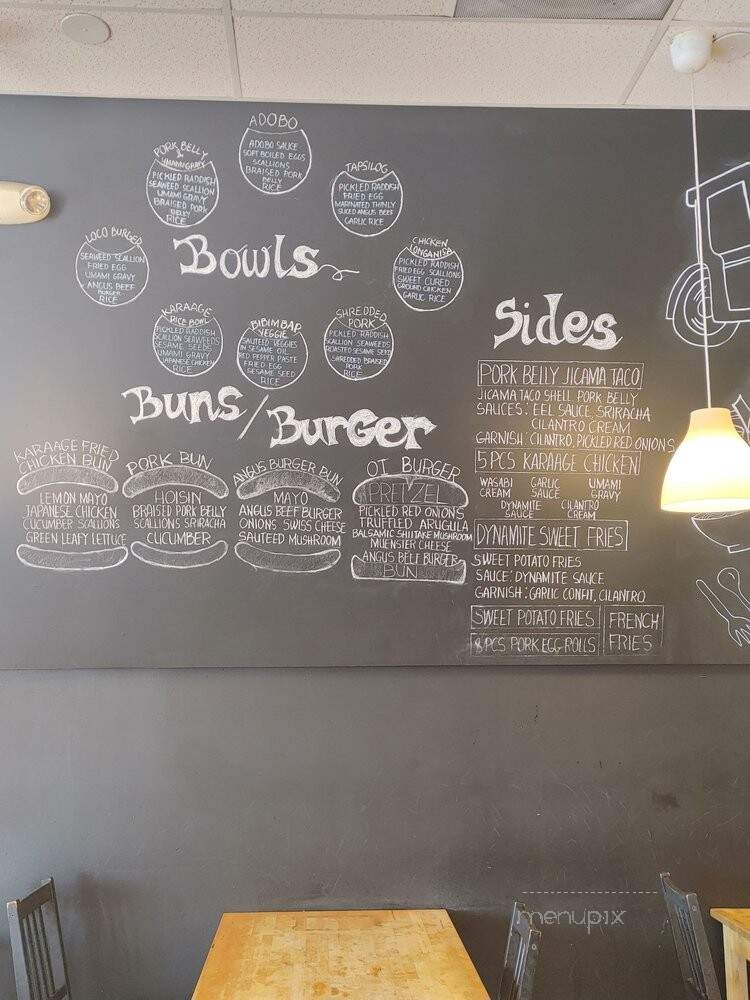 ADOBO
ADOBO SAUCE
SOFT BOILED EGGS
SCALLIONS
BRAISED PORK
BELLY
RICE
PORK BELLY
&
UMAMI GRAVY
PICKLED RADDISH
SEAWEED SCALLION
UMAMI GRAVY
BRAISED PORK
BELLY
RICE
TAPSILOG
PICKLED RADDISH
FRIED EGG
MARINATED THINLY
SLICED ANGUS BEEF
GARLIC RICE
LOCO BURGER
SEAWEED SCALLION
FRIED EGG
UMAMI GRAVY
ANGUS BEEF
BURGER
RICE
Bowls
CHICKEN
LONGANISA
PICKLED RADDISH
FRIED EGG SCALLIONS
SWEET CURED
GROUND CHICKEN
GARLIC RICE
KARAAGE
RICE BOWL
PICKLED RADDISH
SCALLION SEAWEEDS
SESAME SEEDS
UMAMI GRAVY
JAPANESE CHICKEN
RICE
BIBIMBAP
VEGGIE
SAUTEED VEGGIES
IN SESAME OIL
RED PEPPER PASTE
FRIED EGG
SESAME SEED
RICE
SHREDDED
PORK
PICKLED RADDISH
SCALLION SEAWEEDS
ROASTED SESAME SEED
SHREDDED BRAISED
PORK
RICE
Buns / Burger
KARAAGE FRIED
CHICKEN BUN
LEMON MAYO
JAPANESE CHICKEN
CUCUMBER SCALLIONS
GREEN LEAFY LETTUCE
PORK BUN
HOISIN
BRAISED PORK BELLY
SCALLIONS SRIRACHA
CUCUMBER
ANGUS BURGER BUN
MAYO
ANGUS BEEF BURGER
ONIONS SWISS CHEESE
SAUTEED MUSHROOM
OT BURGER
PRETZEL
PICKLED RED ONIONS
TRUFFLED ARUGULA
BALSAMIC SHIITAKE MUSHROOM
MUENSTER CHEESE
ANGUS BEEF BURGER
BUN
Sides
PORK BELLY JICAMA TACO
JICAMA TACO SHELL PORK BELLY
SAUCES: EEL SAUCE, SRIRACHA
CILANTRO CREAM
GARNISH: CILANTRO, PICKLED RED ONIONS
5 PCS KARAAGE CHICKEN
WASABI CREAM
GARLIC SAUCE
UMAMI GRAVY
DYNAMITE SAUCE
CILANTRO CREAM
DYNAMITE SWEET FRIES
SWEET POTATO FRIES
SAUCE: DYNAMITE SAUCE
GARNISH: GARLIC CONFIT, CILANTRO
SWEET POTATO FRIES
FRENCH
FRIES
8 PCS PORK EGG ROLLS
menupix